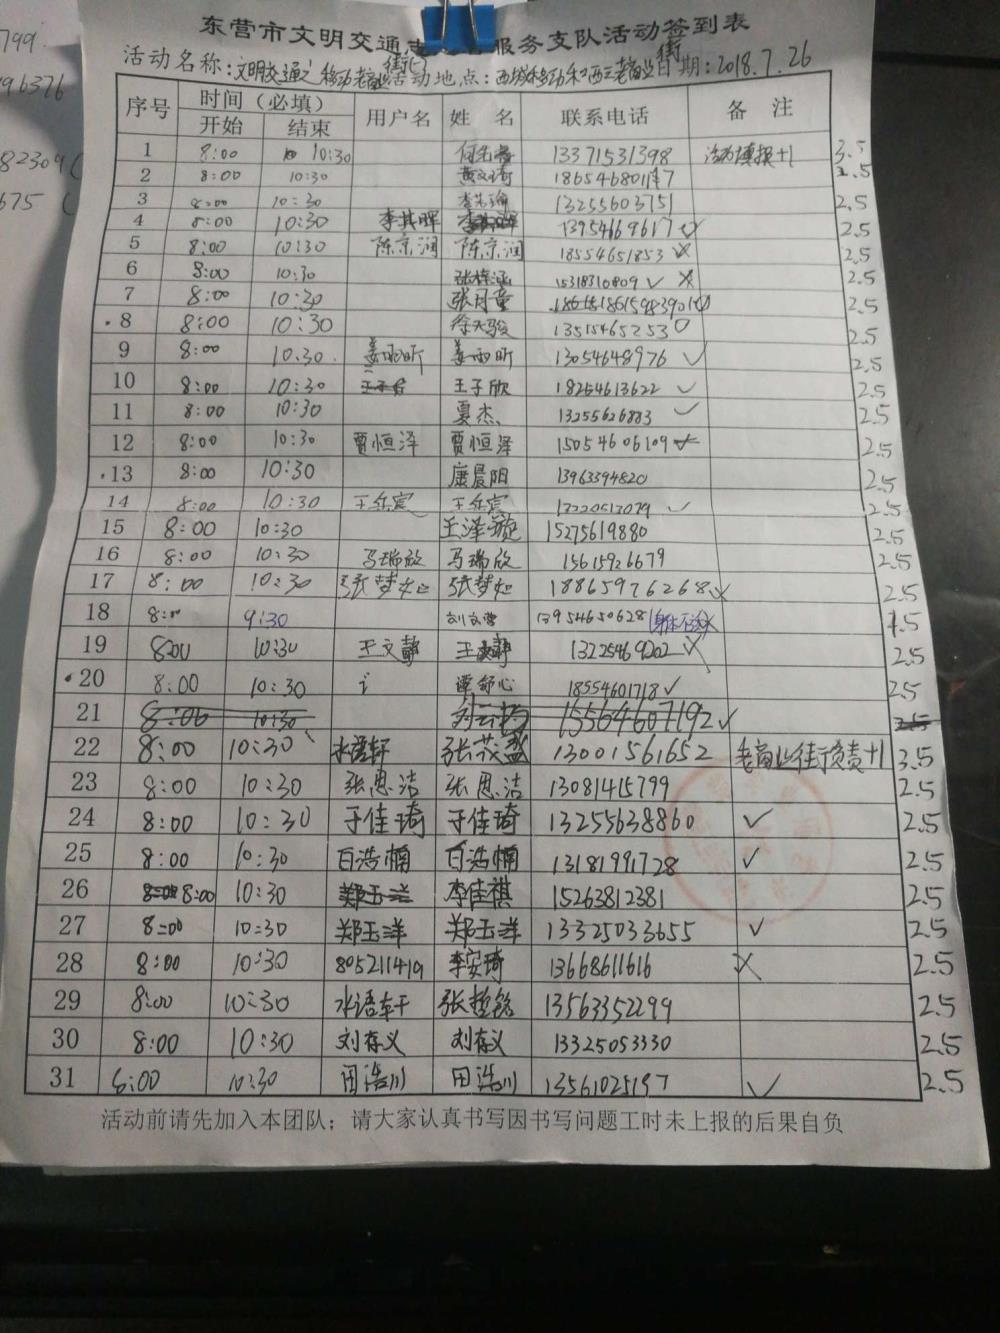 799.
96376
82309(
675 (
东营市文明交通志 服务支队活动签到表
活动名称: 文明交通 移动老商业街 活动地点: 西城移动和西二老商业街 日期: 2018.7.26
序号 时间(必填) 用户名 姓 名 联系电话 备 注
开始 结束
1 8:00 10:30 13371531398 3.5
2 8:00 10:30 2.5
3 8:00 10:30 13255603751 2.5
4 8:00 10:30 李其晖 13954669617 2.5
5 8:00 10:30 陈京润 陈京润 18554651853 2.5
6 8:00 10:30 15318310809 ✓ 2.5
7 8:00 10:30 张月童 2.5
8 8:00 10:30 徐天骏 13515465253 2.5
9 8:00 10:30 姜雨昕 姜雨昕 13054648976 ✓ 2.5
10 8:00 10:30 王子欣 18254613622 ✓ 2.5
11 8:00 10:30 夏杰 13255626883 ✓ 2.5
12 8:00 10:30 贾恒泽 贾恒泽 15054606109 2.5
13 8:00 10:30 康晨阳 13963394820 2.5
14 8:00 10:30 王乐宸 王乐宸 ✓ 2.5
15 8:00 10:30 王泽璇 15275619880 2.5
16 8:00 10:30 马瑞欣 马瑞欣 15615926679 2.5
17 8:00 10:30 张梦如 张梦如 18865976268 2.5
18 8:00 9:30 刘文萱 13954650628 1.5
19 8:00 10:30 王文静 王文静 13225469202 2.5
20 8:00 10:30 谭舒心 18554601718 ✓ 2.5
21 8:00 10:30 15564607192 ✓ 2.5
22 8:00 10:30 水语轩 张苡盛 13001561652 老商业街负责+1 3.5
23 8:00 10:30 张恩洁 张恩洁 13081415799 2.5
24 8:00 10:30 于佳琦 于佳琦 13255638860 ✓ 2.5
25 8:00 10:30 白浩楠 白浩楠 13181991728 ✓ 2.5
26 8:00 8:00 10:30 郑玉洋 李佳祺 15263812381 2.5
27 8:00 10:30 郑玉洋 郑玉洋 13325033655 ✓ 2.5
28 8:00 10:30 805211419 李安琦 13668611616 2.5
29 8:00 10:30 水语轩 张哲铭 13563352299 2.5
30 8:00 10:30 刘存义 刘存义 13325053330 2.5
31 8:00 10:30 田浩川 田浩川 13561025197 ✓ 2.5
活动前请先加入本团队；请大家认真书写因书写问题工时未上报的后果自负